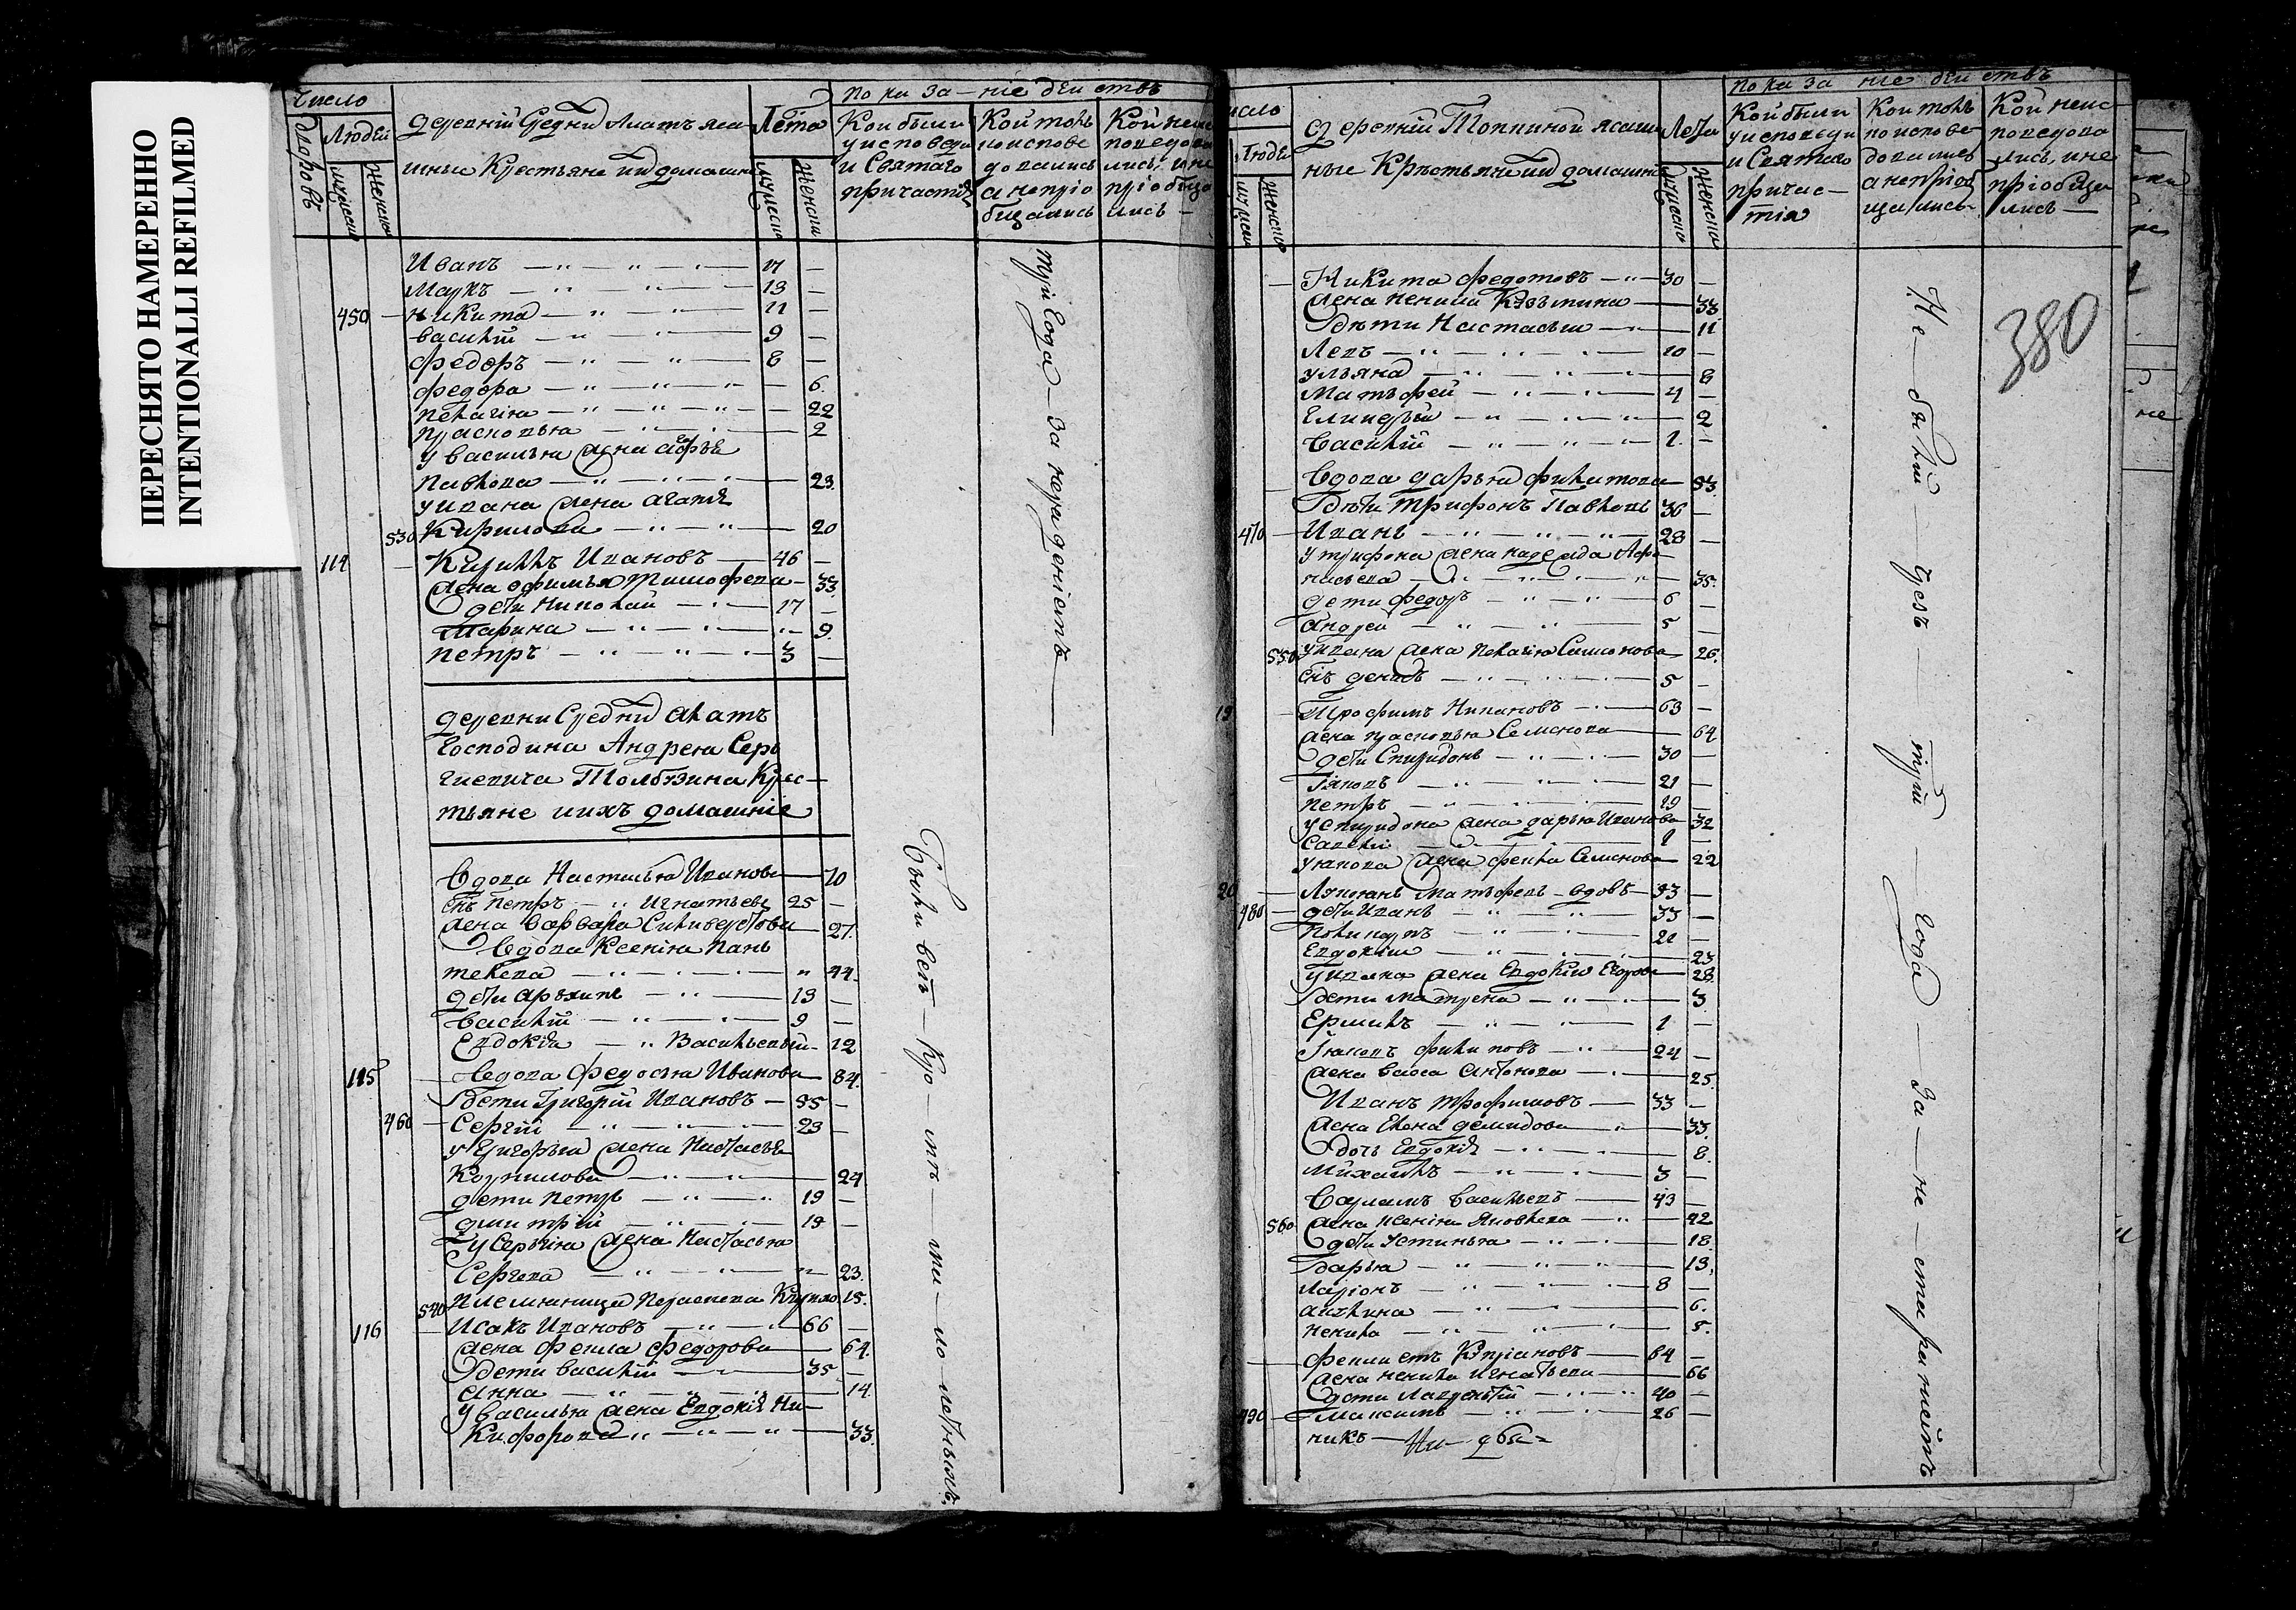 ПЕРЕСНЯТО НАМЕРЕННО
INTENTIONALLI REFILMED
Число
Дворовъ
Людей
мужеска
женска
деревни Средни Алатъ ясаш
ныя Крестьяне ииhдомашни
Лета
мужеска
женска
пока за-ніе деиствъ
Кои были
уисповеди
и Святаго
причастія
Кои токъ
по испове
довались
а непріо
бщались
Кои неис
поведова
лись, ине
пріобща
лись
Иванъ 17
Маркъ 13
450 никита 11
василій 9
Федоръ 8
федора 6
пелагия 22
прасковья 2
у василья жена
Павлова 23
у ивана жена агапія
530 Кирилова 20
114 Кирилъ Ивановъ 46
жена офимья тимофеева 33
дети николай 17
Марина 9
петръ 3
деревни Средни Алатъ
Господина Андрея Сер
гиевича Толбузина Крес
тьяне иихъ домашніе
вдова Настасья Иванова 70
снъ петръ Игнатьевъ 25
жена варвара Силиверстова 27
вдова Ксения пань
телеева 44
дети архипъ 13
василій 9
Евдокія Васильевы 12
115 вдова федосья Иванова 84
дети Григорій Ивановъ 35
460 Сергій 23
у Григорья жена Настасья
Корнилова 24
дети петръ 19
дмитрій
у Сергия жена Настасья
Сергеева 23
540 племянница Кирило 15
116 Исакъ Ивановъ 66
жена фекла федорова 64
дети василій 35
анна 14
у василья жена Евдокия Ни
Кифорова 33
три года за нерадениемъ
были все кро мъ ма ло летныхъ
Число
Людей
мужеска
женска
деревни Топкиной ясаш
ные Крестьяне ииhдомашни
Лета
мужеска
женска
пока за ніе деи ствъ
Кои были
уисповеди
и Святаго
причас-
тія
Кои токъ
по испове
довались
а непріоб
щались
Кои неис
поведова
лись, ине
пріобща
лись
380
Никита федотовъ 30
жена ненила Козьмина 33
дети Настасья 11
Левъ 10
ульяна 8
Матвей 4
2
василій 1
вдова дарья филипова 53
дети трифонъ Павловъ 36
470 Иванъ 28
у трифона жена надежда Афа
насьева 35
дети федоръ 6
андрей 5
550 у ивана жена пелагия Симонова 26
снъ денисъ 5
Трофимъ 63
жена прасковья Семенова 64
дети Спиридонъ 30
Іяковъ 21
петръ 19
у спиридона жена дарья Иванова 32
Савелій 1
у якова жена фекла Семенова 22
вдовъ 53
480 дети Иванъ 33
21
Евдокия 23
у ивана жена Евдокия Егорова 28
дети матрена 3
Ермилъ 1
Іяковъ филиповъ 24
жена васса антонова 25
Иванъ трофимовъ 33
жена Елена демидова 33
дочь Евдокія 8
михаилъ 3
варламъ васильевъ 43
560 жена ксения Яковлева 42
дети устинья 18
дарья 13
ларіонъ 8
акилина 6
ненила 5
феклистъ Купріановъ 64
жена ненила игнатьева 66
дети лаврентій 40
490 максимъ 26
Не были чрезъ три года за не старанiемъ